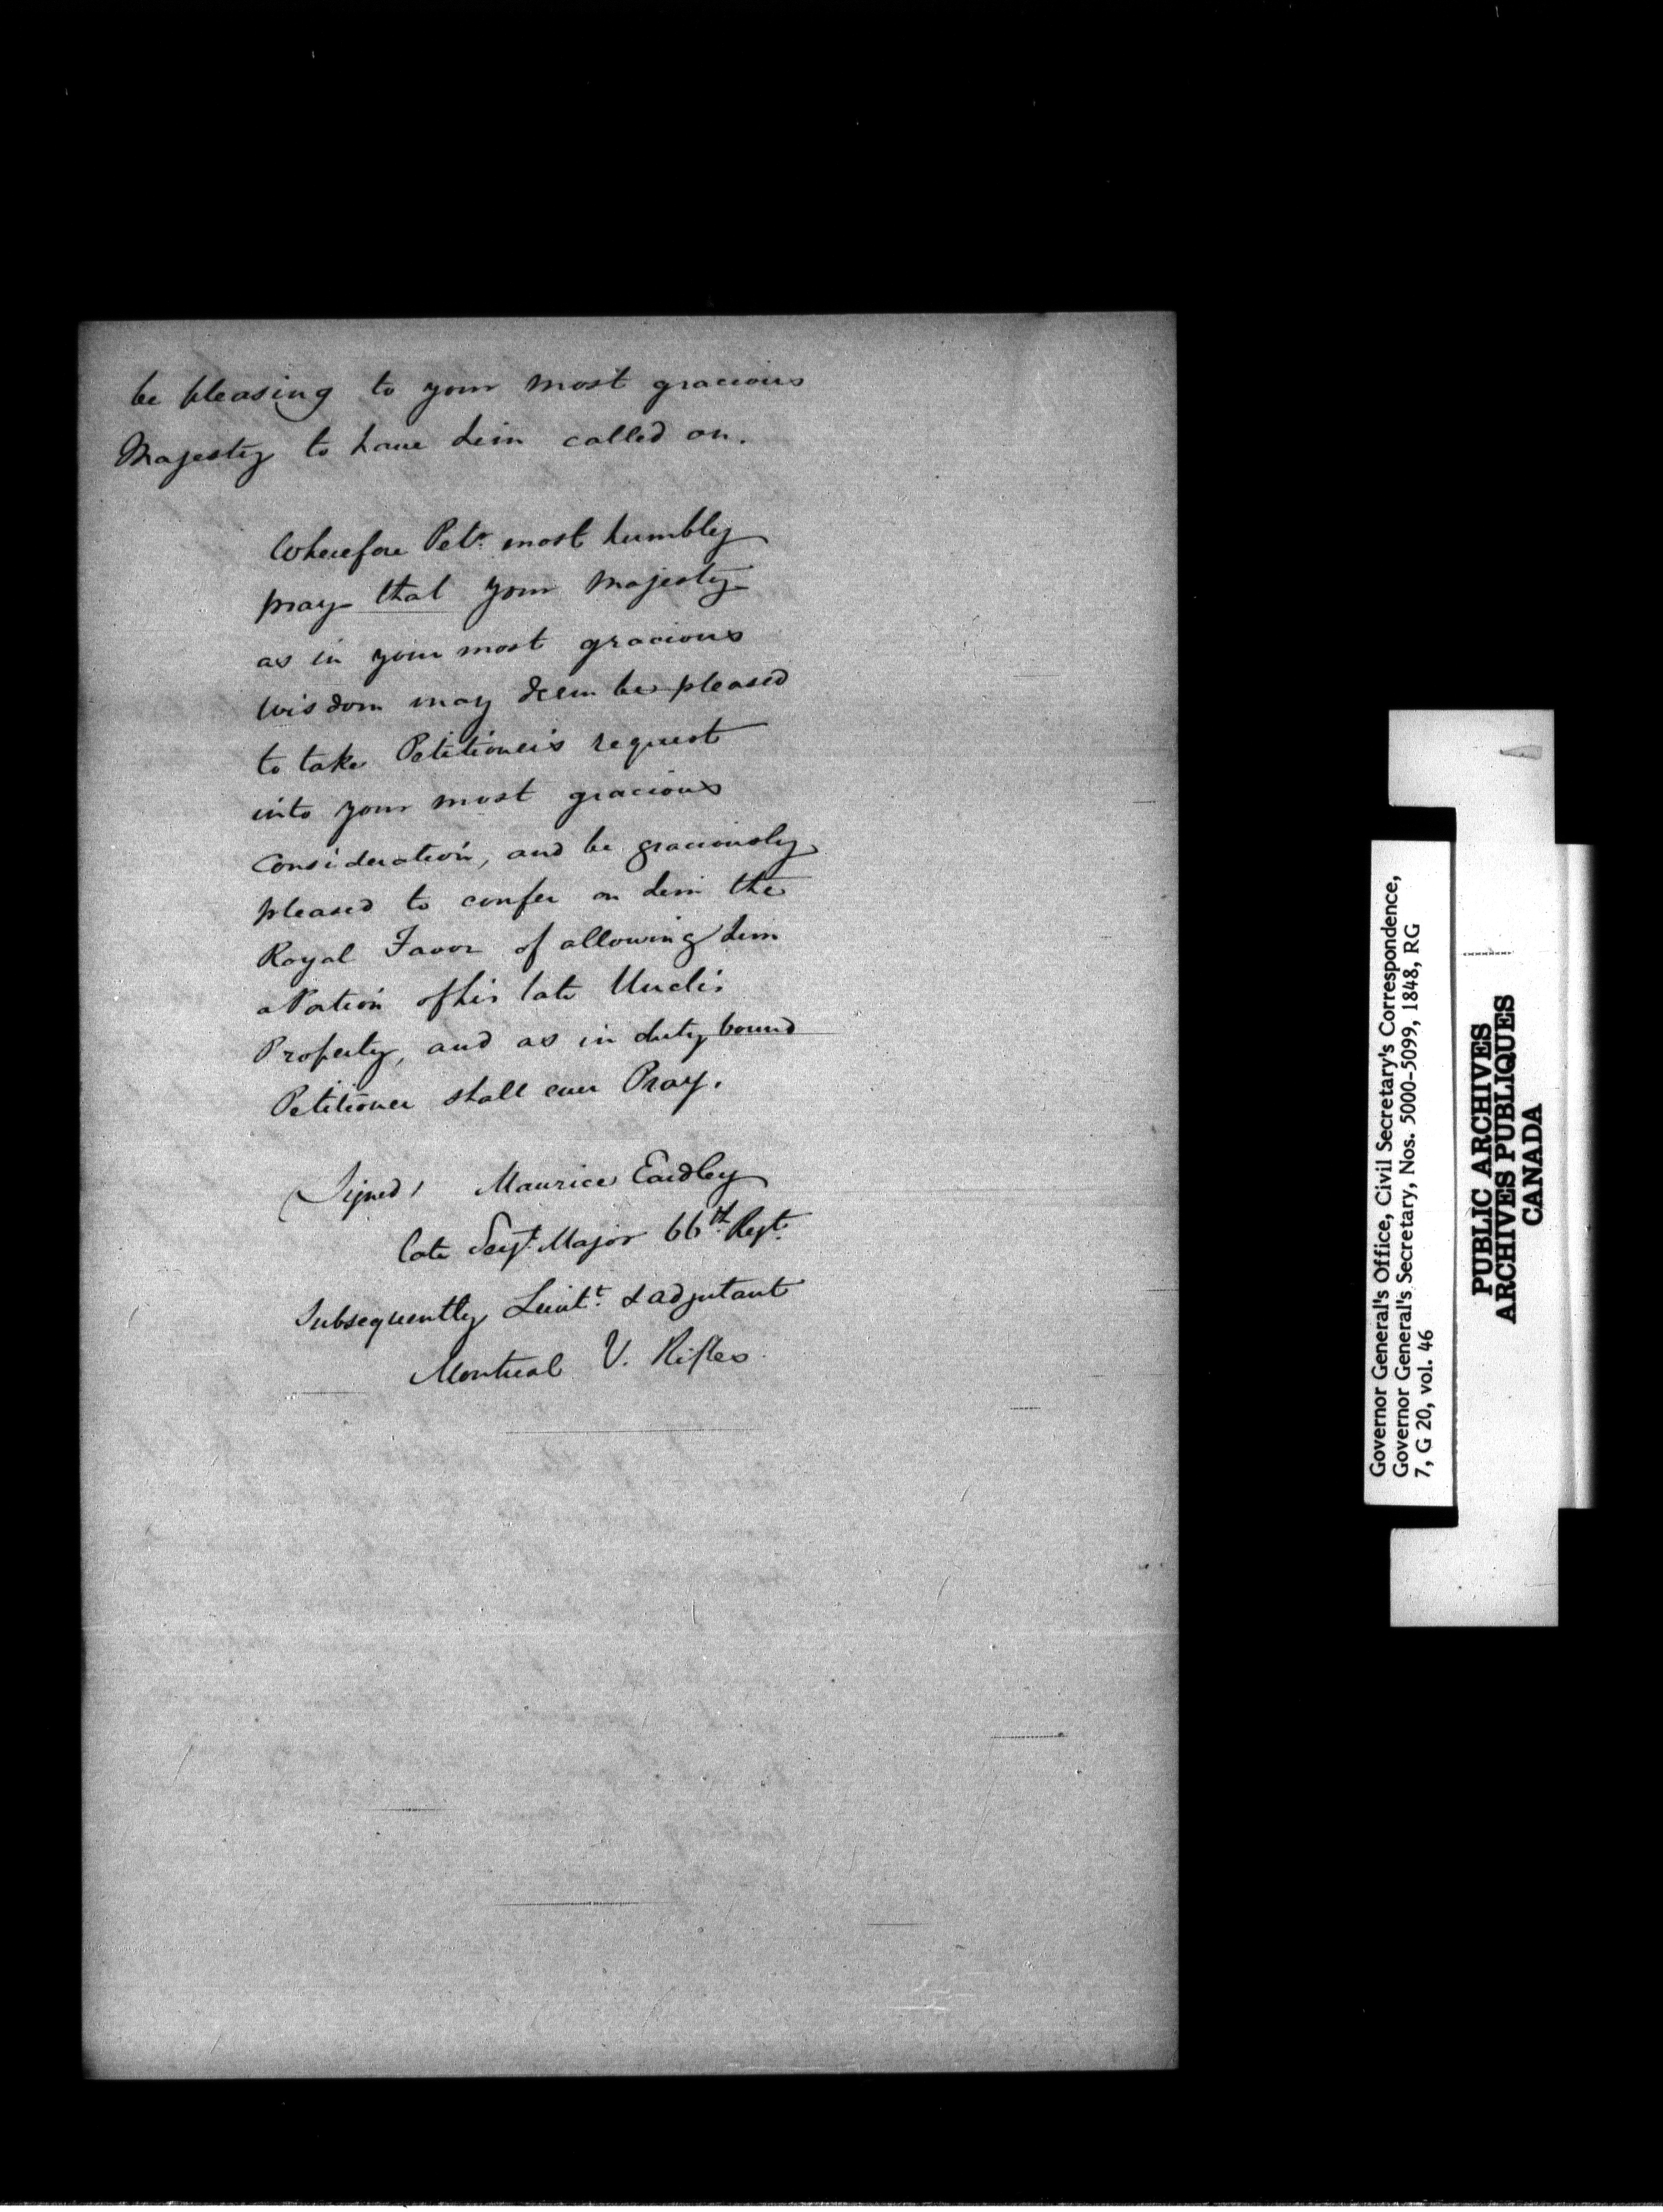 be pleasing to your most gracious
Majesty to have him called on.
Wherefore Petr. most humbly
pray that your Majesty
as in your most gracious
wisdom may deem be pleased
to take Petitioner's request
into your most gracious
Consideration, and be graciously
pleased to confer on him the
Royal Favor of allowing him
a Portion of his late Uncle's
Property, and as in duty bound
Petitioner shall ever Pray.
(Signed) Maurice Eardley
late Sergt. Major 66th. Regt.
Subsequently Lieutt. & adjutant
Montreal V. Rifles.
Governor General's Office, Civil Secretary's Correspondence,
Governor General's Secretary, Nos. 5000-5099, 1848, RG
7, G 20, vol. 46
PUBLIC ARCHIVES
ARCHIVES PUBLIQUES
CANADA